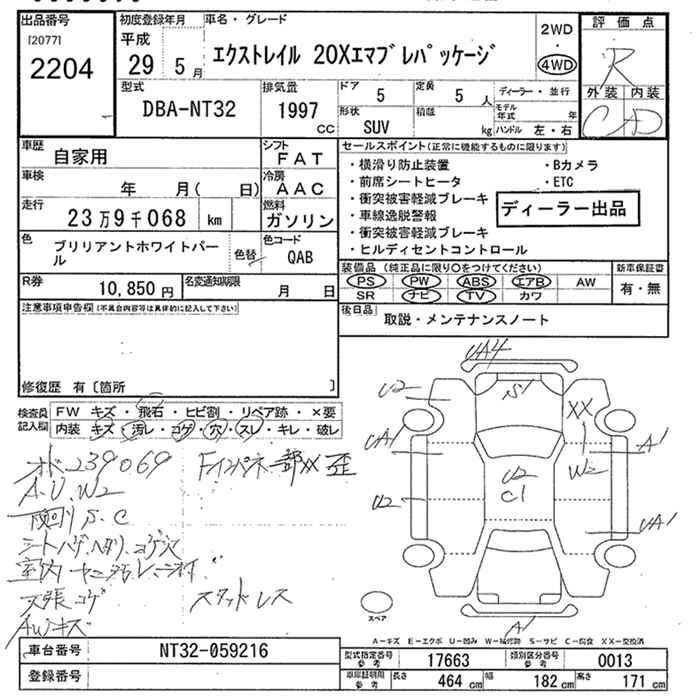 出品番号
[2077]
2204
初度登録年月
平成
29 5 月
車名・グレード
エクストレイル 20Xエマブレパッケージ
2WD
4WD
評価点
R
外装 内装
C D
型式
DBA-NT32
排気量
1997
CC
ドア
5
定員
5 人
形状
SUV
積載
kg
ディーラー・並行
モデル年式 年
ハンドル 左・右
車歴
自家用
シフト
FAT
車検
年 月( 日)
冷房
AAC
走行
23万9千068 km
燃料
ガソリン
色
ブリリアントホワイトパール
色替
色コード
QAB
R券
10,850 円
名変通知期限
月 日
セールスポイント(正常に機能するものに限ります)
・横滑り防止装置
・Bカメラ
・前席シートヒータ
・ETC
・衝突被害軽減ブレーキ
・車線逸脱警報
・衝突被害軽減ブレーキ
・ヒルディセントコントロール
ディーラー出品
装備品(純正品に限り○をつけてください)
PS PW ABS エアB AW
SR ナビ TV カワ
新車保証書
有・無
後日品
取説・メンテナンスノート
注意事項申告欄(不具合内容等は具体的に記入して下さい)
修復歴 有[箇所 ]
検査員記入欄
FW キズ・飛石・ヒビ割・リペア跡・×要
内装 キズ・汚レ・コゲ・穴・スレ・キレ・破レ
オド239069
Fインパネ一部XX歪
A.U.W2
下回りS.C
シートハゲ、ヘタリ、コゲ穴
天張コゲ
スタッドレス
AWキズ
UA4
S1
U2
XX
UA1
A1
W2
U2
C1
U2
UA1
A1
スペア
A-キズ E-エクボ U-凹み W-補修跡 S-サビ C-腐食 XX-交換済
車台番号
NT32-059216
登録番号
型式指定番号参考
17663
類別区分番号参考
0013
車庫証明用参考
長さ 464 cm
幅 182 cm
高さ 171 cm